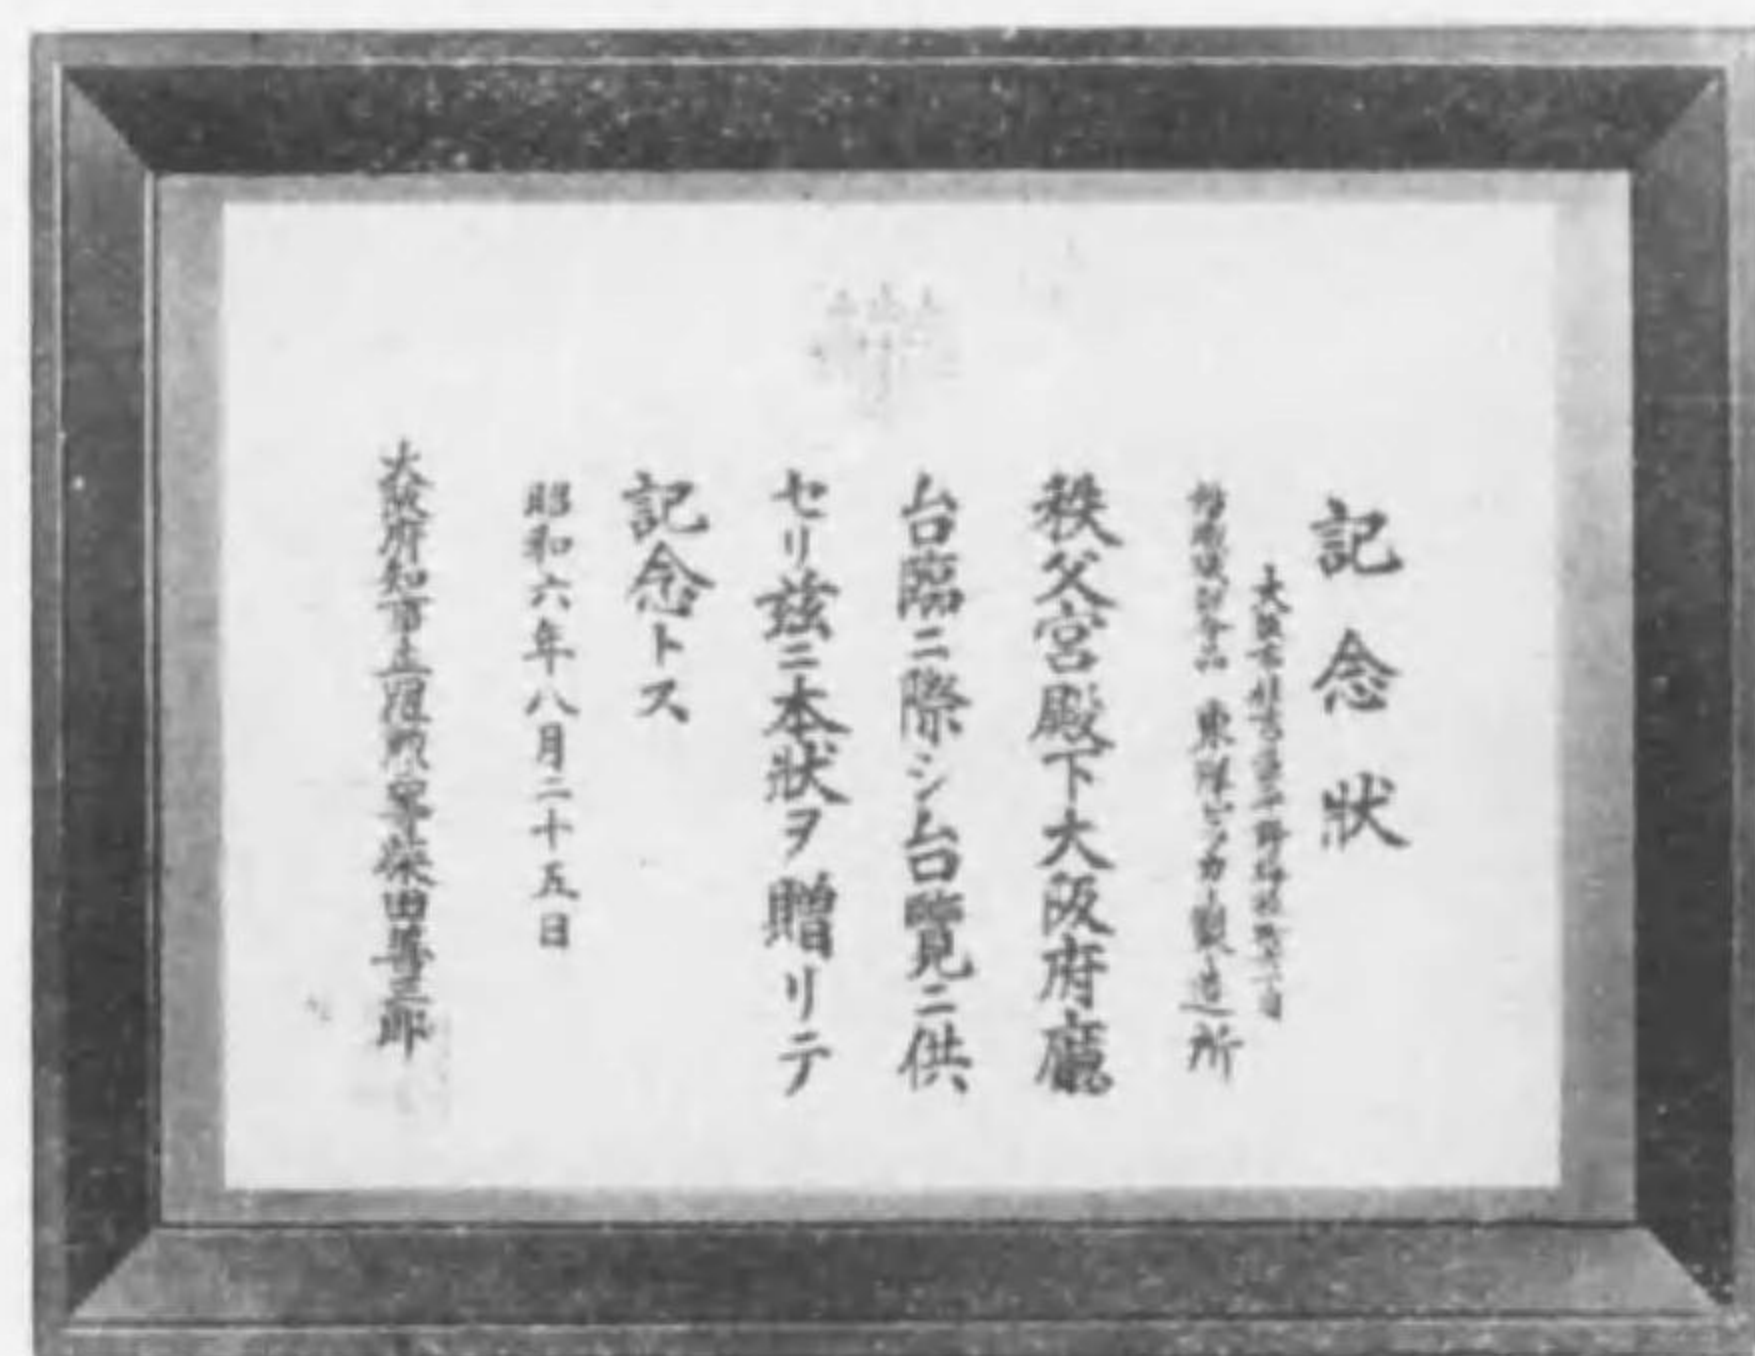 記念狀
大阪市住吉區平野
東洋ピッカー製造所
秩父宮殿下大阪府廳
台臨ニ際シ台覽ニ供
セリ茲ニ本狀ヲ贈リテ
記念トス
昭和六年八月二十五日
大阪府知事正四位勲三等柴田善三郎